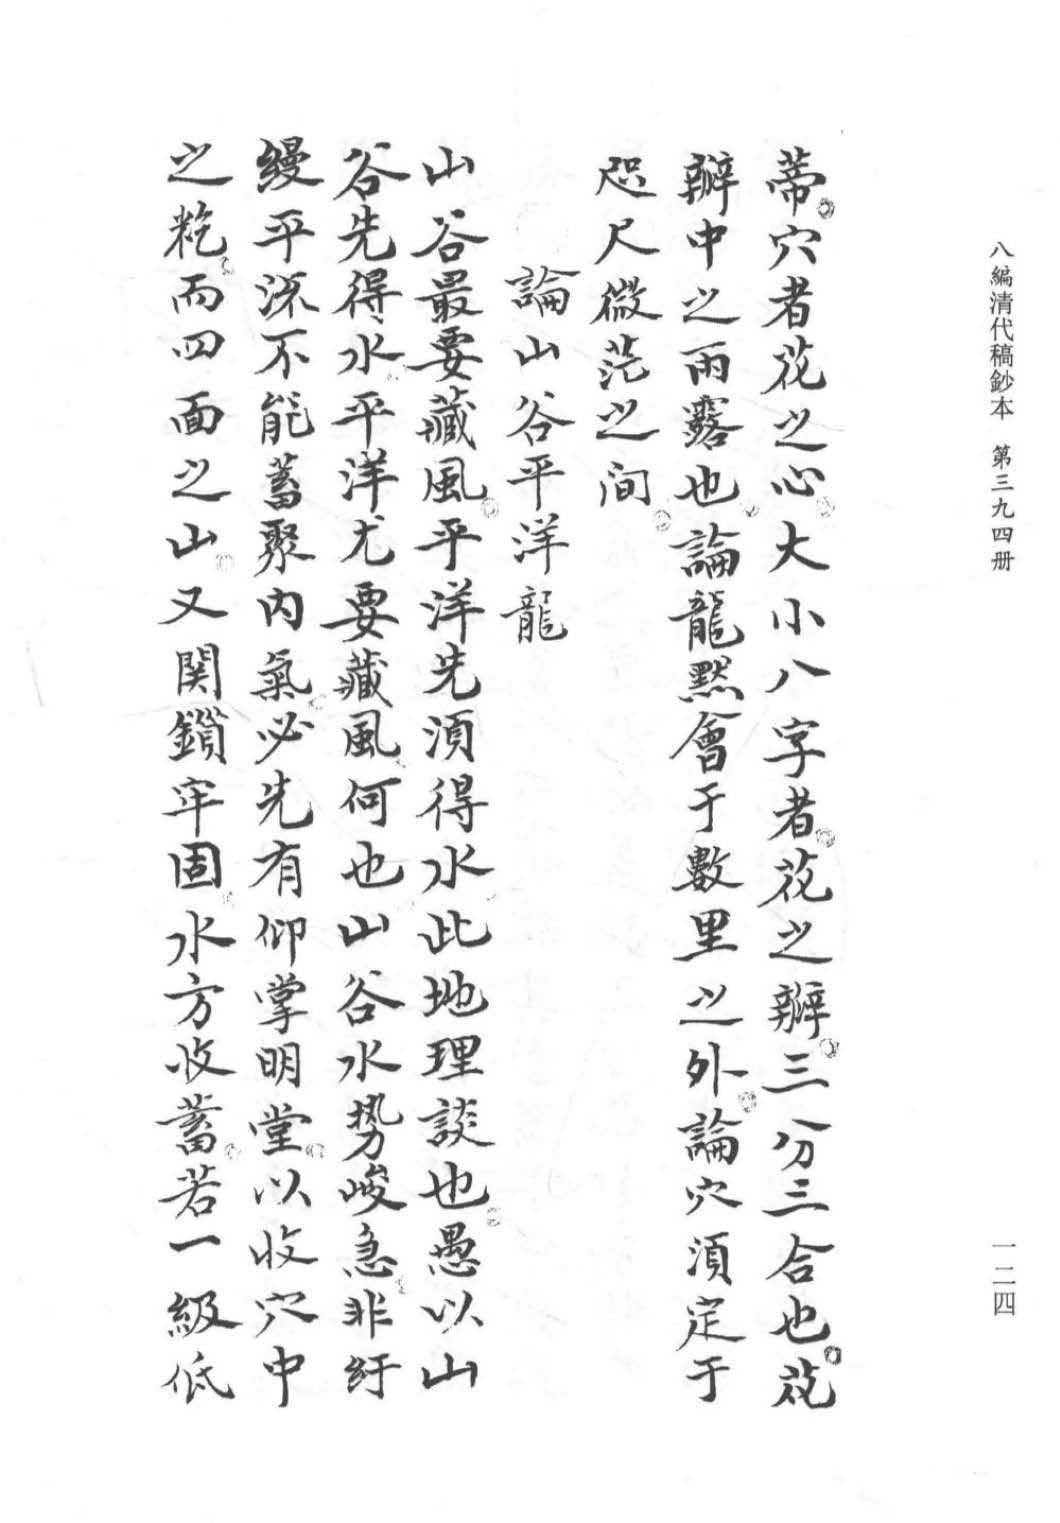 八編清代稿鈔本 第三九四册
蒂穴者花之心大小八字者花之辦三分三合也花
辦中之雨露也論龍默會于數里之外論穴湏定于
咫尺微茫之间
論山谷平洋龍
山谷最要藏風平洋先湏得水此地理談也愚以山
谷先得水平洋尤要藏風何也山谷水势峻急非紆
縵平流不能蓄聚内氣必先有仰掌明堂以收穴中
之乾而四面之山又関鎖牢固水方收蓄若一級低
一二四